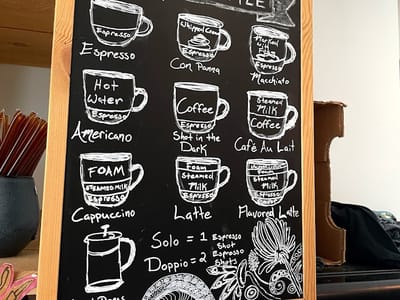 Espresso
Espresso
Whipped Cream
Espresso
Con Panna
Marked
with
Foam
Espresso
Macchiato
Hot
Water
Espresso
Americano
Coffee
Espresso
Shot in the
Dark
Steamed
Milk
Coffee
Café Au Lait
FOAM
STEAMED MILK
ESPRESSO
Cappuccino
Foam
Steamed
Milk
Espresso
Latte
Foam
Steamed
Milk
Espresso
Flavored Latte
Solo = 1 Espresso
Shot
Doppio = 2 Espresso
Shots